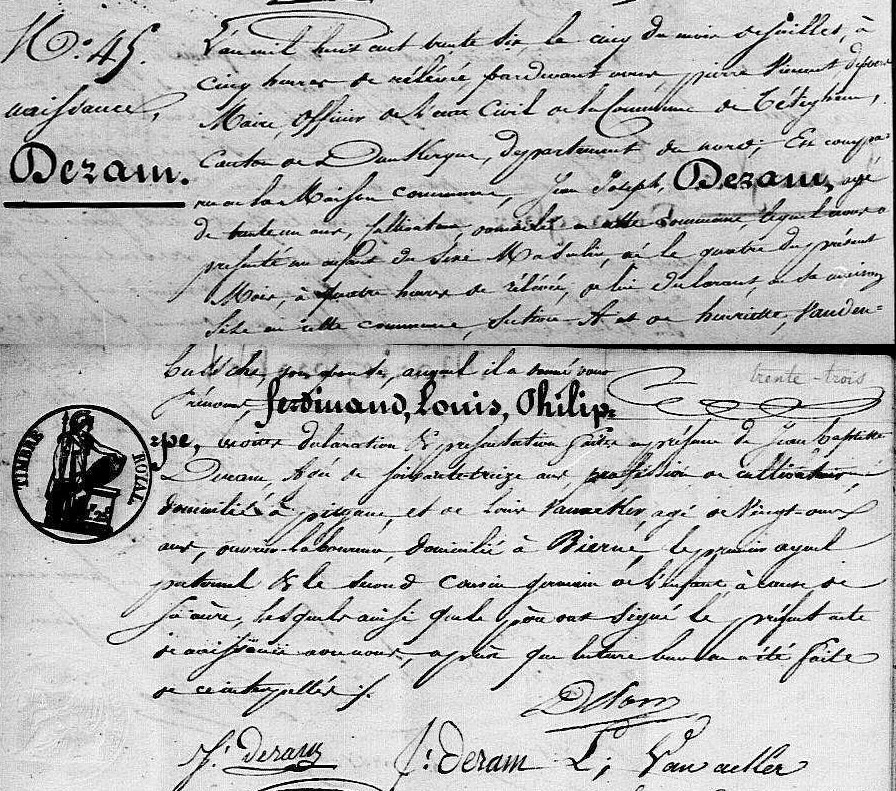 N.º 45.
naissance,
Dezam.
L'an mil huit cent trente six, le cinq du mois de juillet, à
cinq heures de rélévée, pardevant nous, pierre
Maire, Officier de l'état Civil de la Commune de Tétéghem,
Canton de Dunkerque, département du nord; Est compa-
ru en la Maison commune, Jean Joseph, Dezam, agé
de trente un ans, cultivateur, domicilié en cette commune, lequel nous a
présenté un enfant du Sexe Masculin, né le quatre du présent
Mois, à quatre heures de rélévée, de lui déclarant, en sa maison
Sise en cette commune, Section A et de henriette, Vanden-
trente-trois
auquel il a donné pour
prénoms, ferdinand, Louis, Philip-
TIMBRE ROYAL
pe, déclaration & présentation faites en présence de Jean baptiste
Dezam, Agé de soixante-treize ans, profession de cultivateur,
domicilié à pitgam, et de Louis Vanacker, agé de Vingt-onze
ans, ouvrier-laboureur, domicilié à Bierne, le premier ayeul
paternel & le second Cousin germain de l'enfant, à cause de
Sa mère, lesquels ainsi que le père ont signé le présent acte
de naissance avec nous, après que lecture leur en a été faite
de ce interpellés ./.
J: dezam J: deram L; Van acker